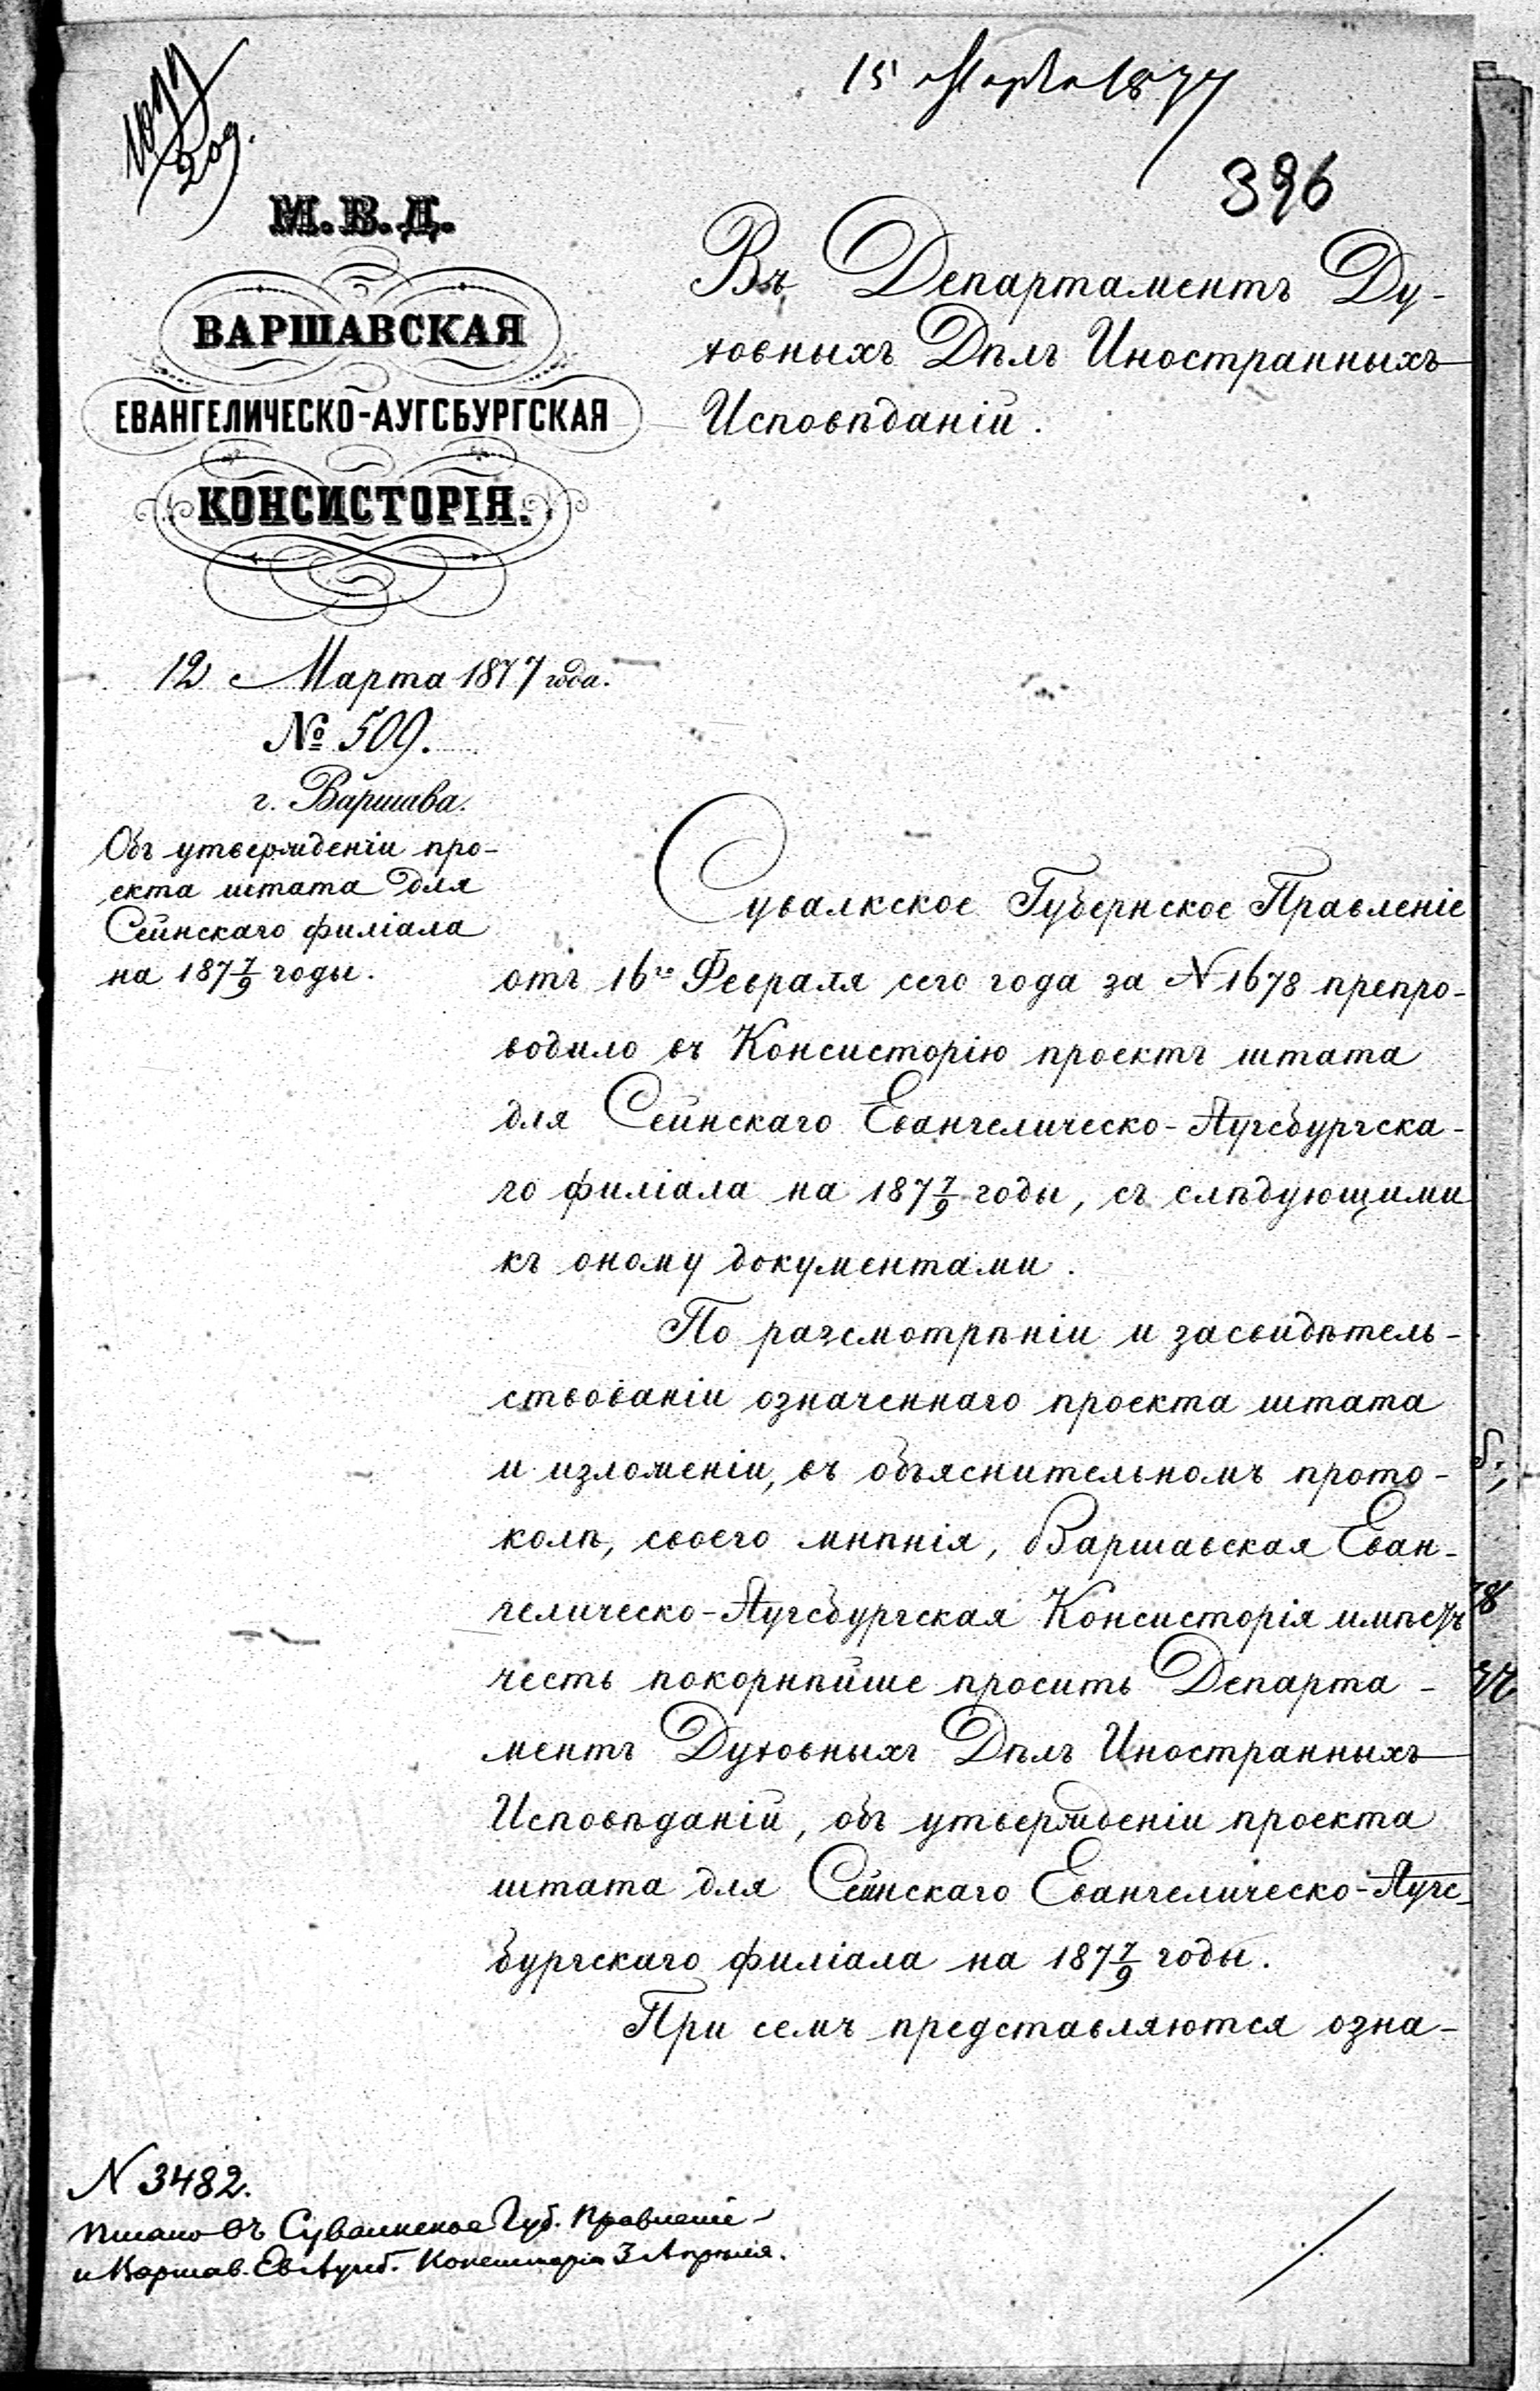 1077
209.
15 Марта 1877
396
М. В. Д.
ВАРШАВСКАЯ
ЕВАНГЕЛИЧЕСКО-АУГСБУРГСКАЯ
КОНСИСТОРІЯ.
12 Марта 1877 года.
№ 509.
г. Варшава.
Объ утвержденіи про-
екта штата для
Сейнскаго филіала
на 187 7/9 годы.
Въ Департаментъ Ду-
ховныхъ Дѣлъ Иностранныхъ
Исповѣданій.
Сувалкское Губернское Правленіе
отъ 16го Февраля сего года за N 1678 препро-
водило въ Консисторію проектъ штата
для Сейнскаго Евангелическо-Аугсбургска-
го филіала на 187 7/9 годы, съ слѣдующими
къ оному документами.
По разсмотрѣніи и засвидѣтель-
ствованіи означеннаго проекта штата
и изложеніи, въ объяснительномъ прото-
колѣ, своего мнѣнія, Варшавская Еван-
гелическо-Аугсбургская Консисторія имѣетъ
честь покорнѣйше просить Департа-
ментъ Духовныхъ Дѣлъ Иностранныхъ
Исповѣданій, объ утвержденіи проекта
штата для Сейнскаго Евангелическо-Аугс-
бургскаго филіала на 187 7/9 годы.
При семъ представляются озна-
N 3482.
Писано въ Сувалкское Губ. Правленіе
и Варшав. Ев. Аугсб. Консисторію 3 Апрѣля.